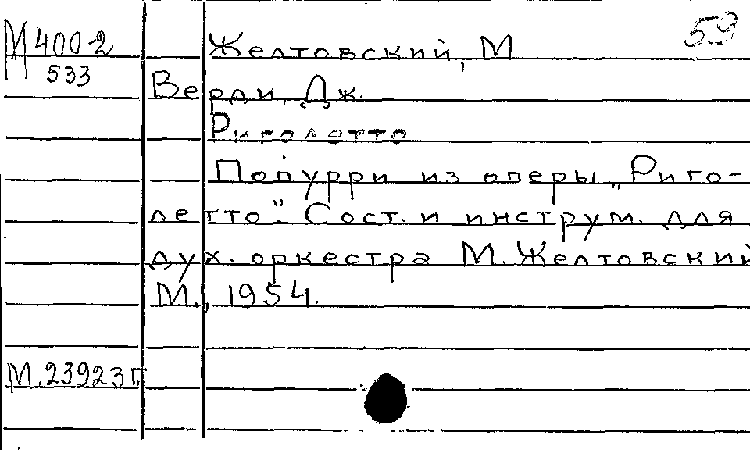 59
М 400-2
533
Желтовский, М
Верди, Дж.
Риголетто
Попурри из оперы „Риго-
летто". Сост. и инструм. для
дух. оркестра М. Желтовский
М., 1954.
М. 23923п